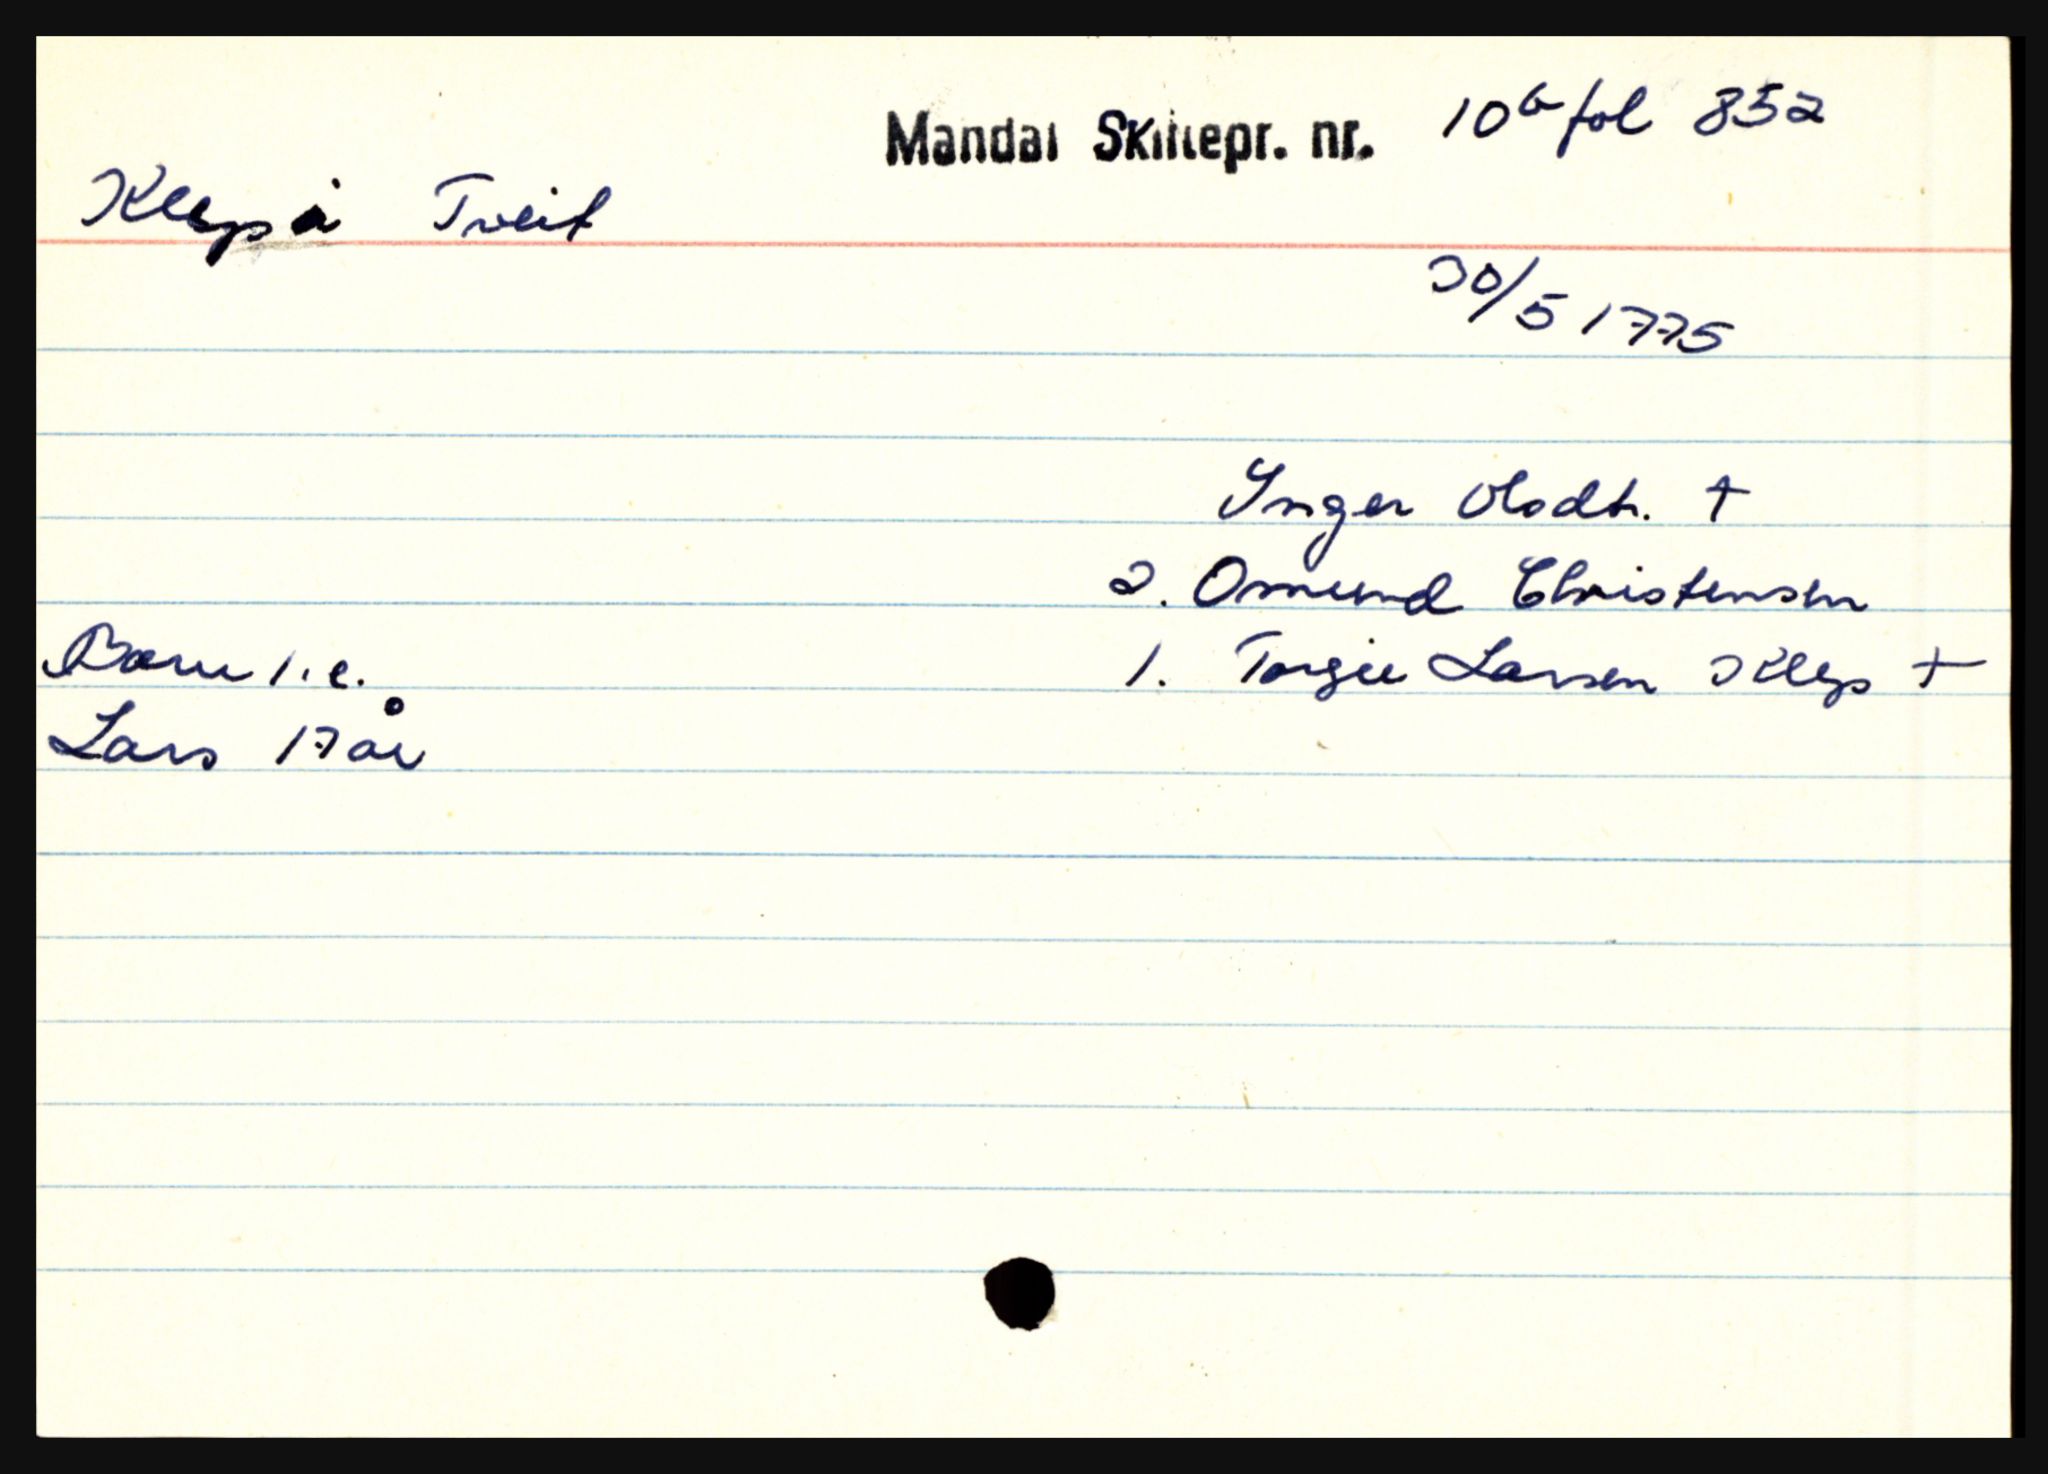 Mandal Skiftepr. nr. 10b fol 852
Klep i Tveit
30/5 1775
Inger Olsdtr. †
2. Omund Christensen
Barn 1. e. 1. Torgie Larsen Klep †
Lars 17 år